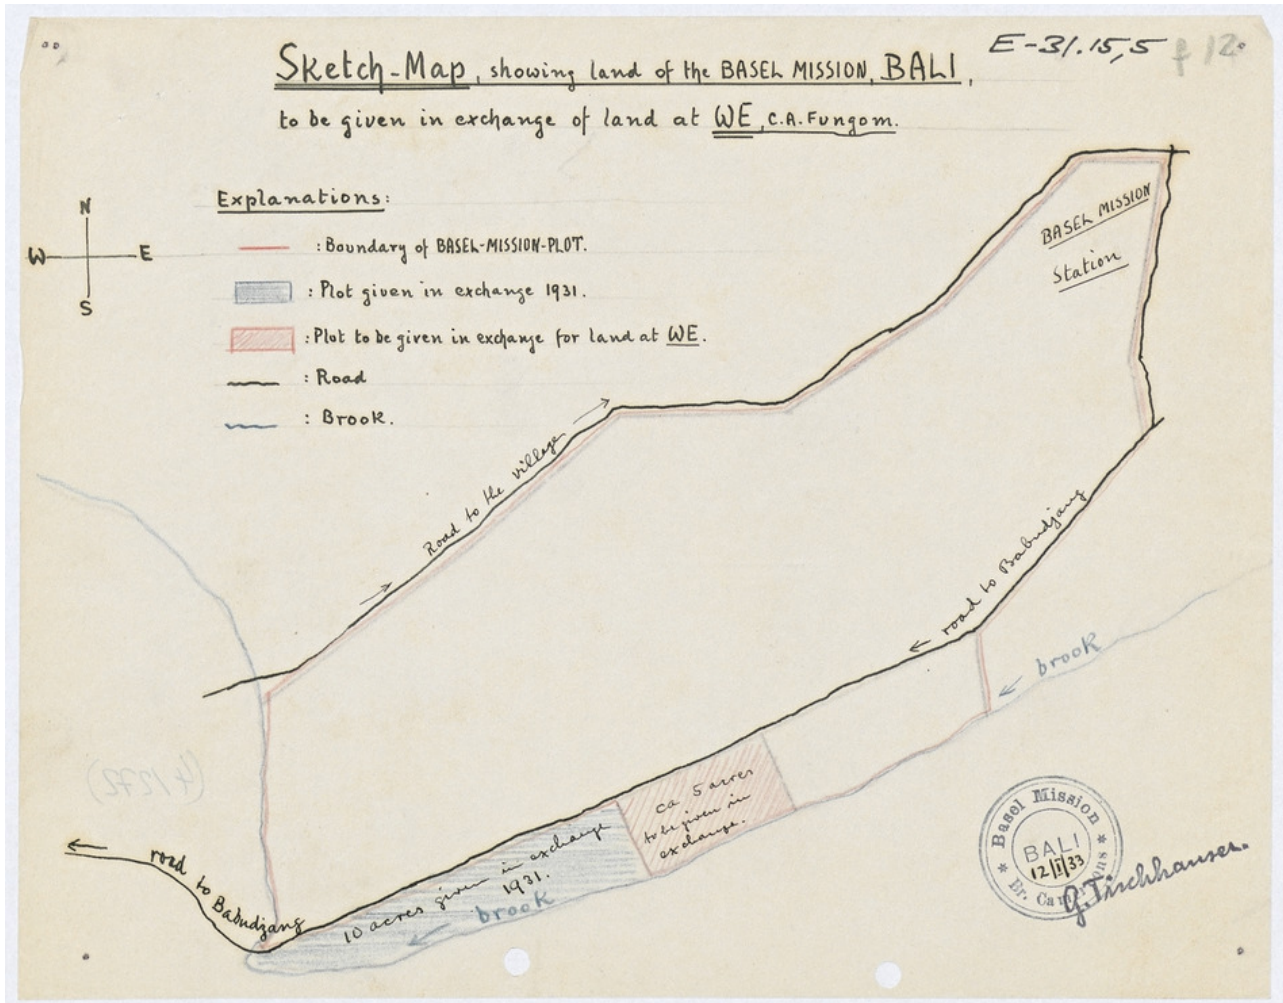 E-31.15,5
f 12
Sketch-Map, showing land of the BASEL MISSION, BALI,
to be given in exchange of land at WE, C.A. Fungom.
Explanations:
: Boundary of BASEL-MISSION-PLOT.
: Plot given in exchange 1931.
: Plot to be given in exchange for land at WE.
: Road
: Brook.
N
W
E
S
BASEL MISSION
Station
Road to the village
road to Babudjang
brook
ca 5 acres
to be given in
exchange.
10 acres given in exchange
1931.
brook
road to Babudjang
(41272)
Basel Mission
BALI
12|I|33
Br. Cameroons
G. Tischhauser.